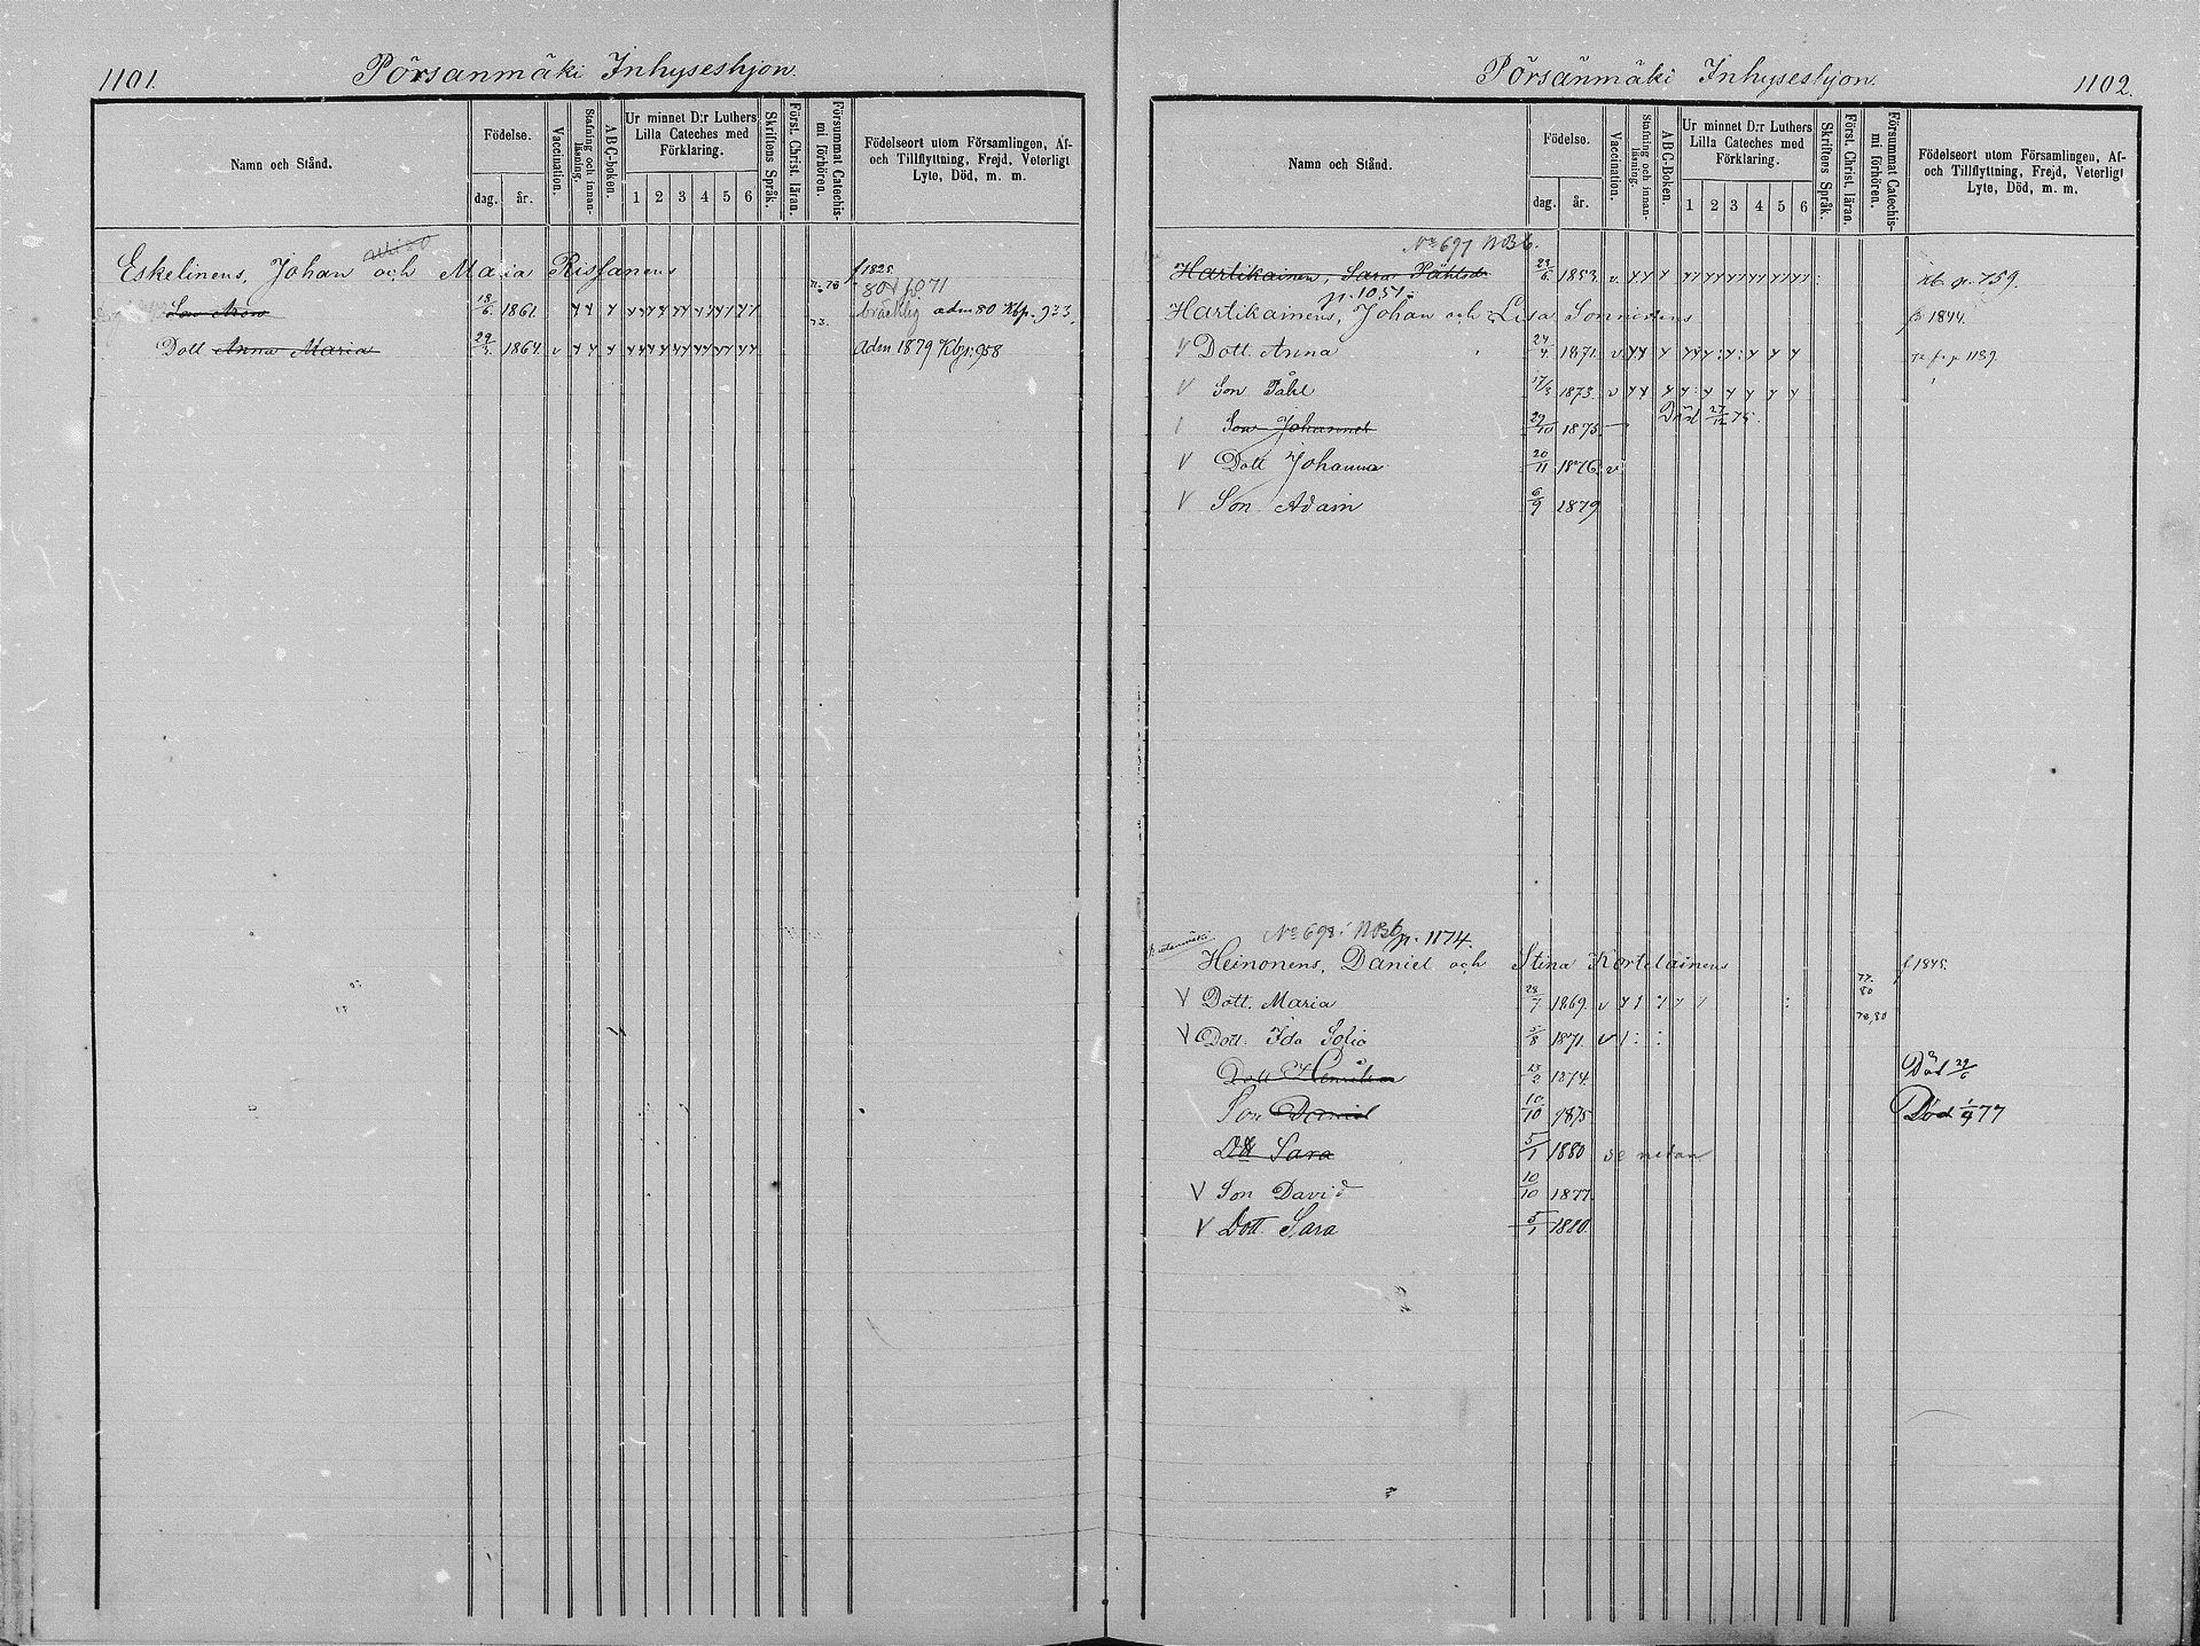 1101.
Pörsänmäki Inhyseshjon.
Namn och Stånd.
Födelse.
dag.
år.
Vaccination.
Stafning och innanläsning.
ABC-boken.
Ur minnet D:r Luthers Lilla Cateches med Förklaring.
1 2 3 4 5 6
Skriftens Språk.
Först. Christ. läran.
Försummat Catechismi förhören.
Födelseort utom Församlingen, Af- och Tillflyttning, Frejd, Veterligt Lyte, Död, m. m.
Eskelinens, Johan och Maria Rissanens f 1825.
Son Aron 18/6 1861. bräcklig adm 80 Kbp. 933.
Dott Anna Maria 29/3 1864 v Adm 1879 Kbp: 958
1102.
Pörsänmäki Inhyseshjon.
Namn och Stånd.
Födelse.
dag.
år.
Vaccination.
Stafning och innanläsning.
ABC-Boken.
Ur minnet D:r Luthers Lilla Cateches med Förklaring.
1 2 3 4 5 6
Skriftens Språk.
Först. Christ. läran.
Försummat Catechismi förhören.
Födelseort utom Församlingen, Af- och Tillflyttning, Frejd, Veterligt Lyte, Död, m. m.
No 697 NBb.
Hartikainen, Sara Påhlsdr 23/6 1853. v. Kb. p. 759.
p. 1051.
Hartikainens, Johan och Lisa Sonninens f 1844.
V Dott. Anna 24/4 1871. v f. p. 1139.
V Son Påhl 17/3 1873. v
Son Johannes 29/10 1875. — Död 27/12 75.
V Dott Johanna 20/11 1876. v
V Son Adam 6/9 1879
No 698: NBb p. 1174.
Heinonens, Daniel och Stina Kortelainens f 1845.
77. 80
V Dott. Maria 28/7 1869. v
78, 80
V Dott. Ida Sofia 5/8 1871. v
Dott Henrika 13/2 1874. Död 29/6
Son Daniel 10/10 1875 Död 1/9 77
Dtt Sara 5/1 1880 se nedan
V Son David 10/10 1877.
V Dott Sara 5/1 1880.